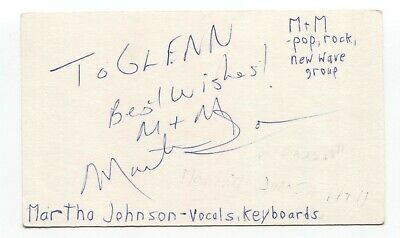 To GLENN
Best Wishes!
M+M
M+M
-pop, rock,
new wave
group
Martha Johnson-Vocals, Keyboards